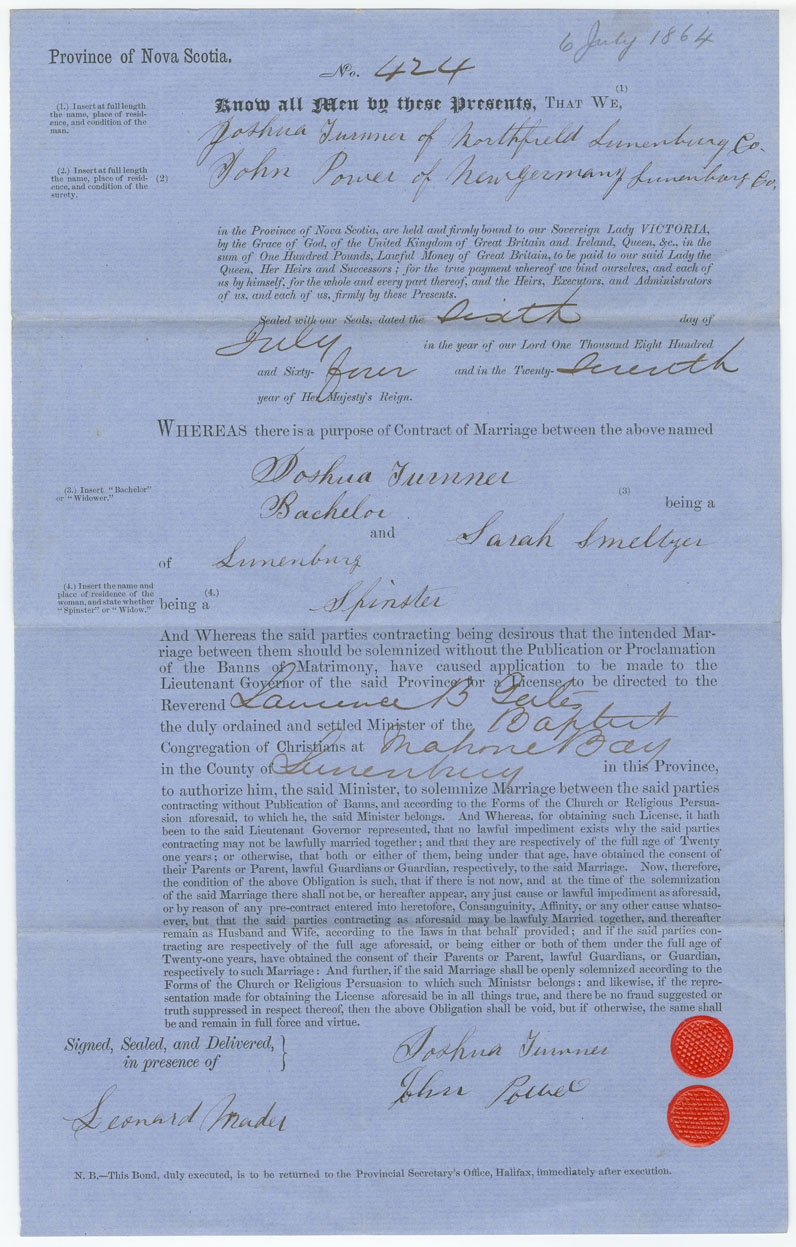 6 July 1864
Province of Nova Scotia.
No. 424
(1)
Know all Men by these Presents, THAT WE,
(1.) Insert at full length
the name, place of resid-
ence, and condition of the
man.
Joshua Turner of Northfield Lunenburg Co.
(2.) Insert at full length
the name, place of resid-
ence, and condition of the
surety.
(2)
John Power of New Germany Lunenburg Co.
in the Province of Nova Scotia, are held and firmly bound to our Sovereign Lady VICTORIA,
by the Grace of God, of the United Kingdom of Great Britain and Ireland, Queen, &c., in the
sum of One Hundred Pounds, Lawful Money of Great Britain, to be paid to our said Lady the
Queen, Her Heirs and Successors; for the true payment whereof we bind ourselves, and each of
us by himself, for the whole and every part thereof, and the Heirs, Executors, and Administrators
of us, and each of us, firmly by these Presents.
Sealed with our Seals, dated the Sixth day of
July in the year of our Lord One Thousand Eight Hundred
and Sixty- four and in the Twenty- Seventh
year of Her Majesty's Reign.
WHEREAS there is a purpose of Contract of Marriage between the above named
Joshua Turnner
(3.) Insert "Bachelor"
or "Widower."
(3)
Bachelor being a
and Sarah Smeltzer
of Lunenburg
(4.) Insert the name and
place of residence of the
woman, and state whether
"Spinster" or "Widow."
(4.)
being a Spinster
And Whereas the said parties contracting being desirous that the intended Mar-
riage between them should be solemnized without the Publication or Proclamation
of the Banns of Matrimony, have caused application to be made to the
Lieutenant Governor of the said Province for a License to be directed to the
Reverend Laurence B Gates
the duly ordained and settled Minister of the Baptist
Congregation of Christians at Mahone Bay
in the County of Lunenburg in this Province,
to authorize him, the said Minister, to solemnize Marriage between the said parties
contracting without Publication of Banns, and according to the Forms of the Church or Religious Persua-
sion aforesaid, to which he, the said Minister belongs. And Whereas, for obtaining such License, it hath
been to the said Lieutenant Governor represented, that no lawful impediment exists why the said parties
contracting may not be lawfully married together; and that they are respectively of the full age of Twenty
one years; or otherwise, that both or either of them, being under that age, have obtained the consent of
their Parents or Parent, lawful Guardians or Guardian, respectively, to the said Marriage. Now, therefore,
the condition of the above Obligation is such, that if there is not now, and at the time of the solemnization
of the said Marriage there shall not be, or hereafter appear, any just cause or lawful impediment as aforesaid,
or by reason of any pre-contract entered into heretofore, Consanguinity, Affinity, or any other cause whatso-
ever, but that the said parties contracting as aforesaid may be lawfuly Married together, and thereafter
remain as Husband and Wife, according to the laws in that behalf provided; and if the said parties con-
tracting are respectively of the full age aforesaid, or being either or both of them under the full age of
Twenty-one years, have obtained the consent of their Parents or Parent, lawful Guardians, or Guardian,
respectively to such Marriage: And further, if the said Marriage shall be openly solemnized according to the
Forms of the Church or Religious Persuasion to which such Ministsr belongs: and likewise, if the repre-
sentation made for obtaining the License aforesaid be in all things true, and there be no fraud suggested or
truth suppressed in respect thereof, then the above Obligation shall be void, but if otherwise, the same shall
be and remain in full force and virtue.
Signed, Sealed, and Delivered, }
in presence of
Joshua Turnner
John Power
Leonard Mader
N. B.—This Bond, duly executed, is to be returned to the Provincial Secretary's Office, Halifax, immediately after execution.